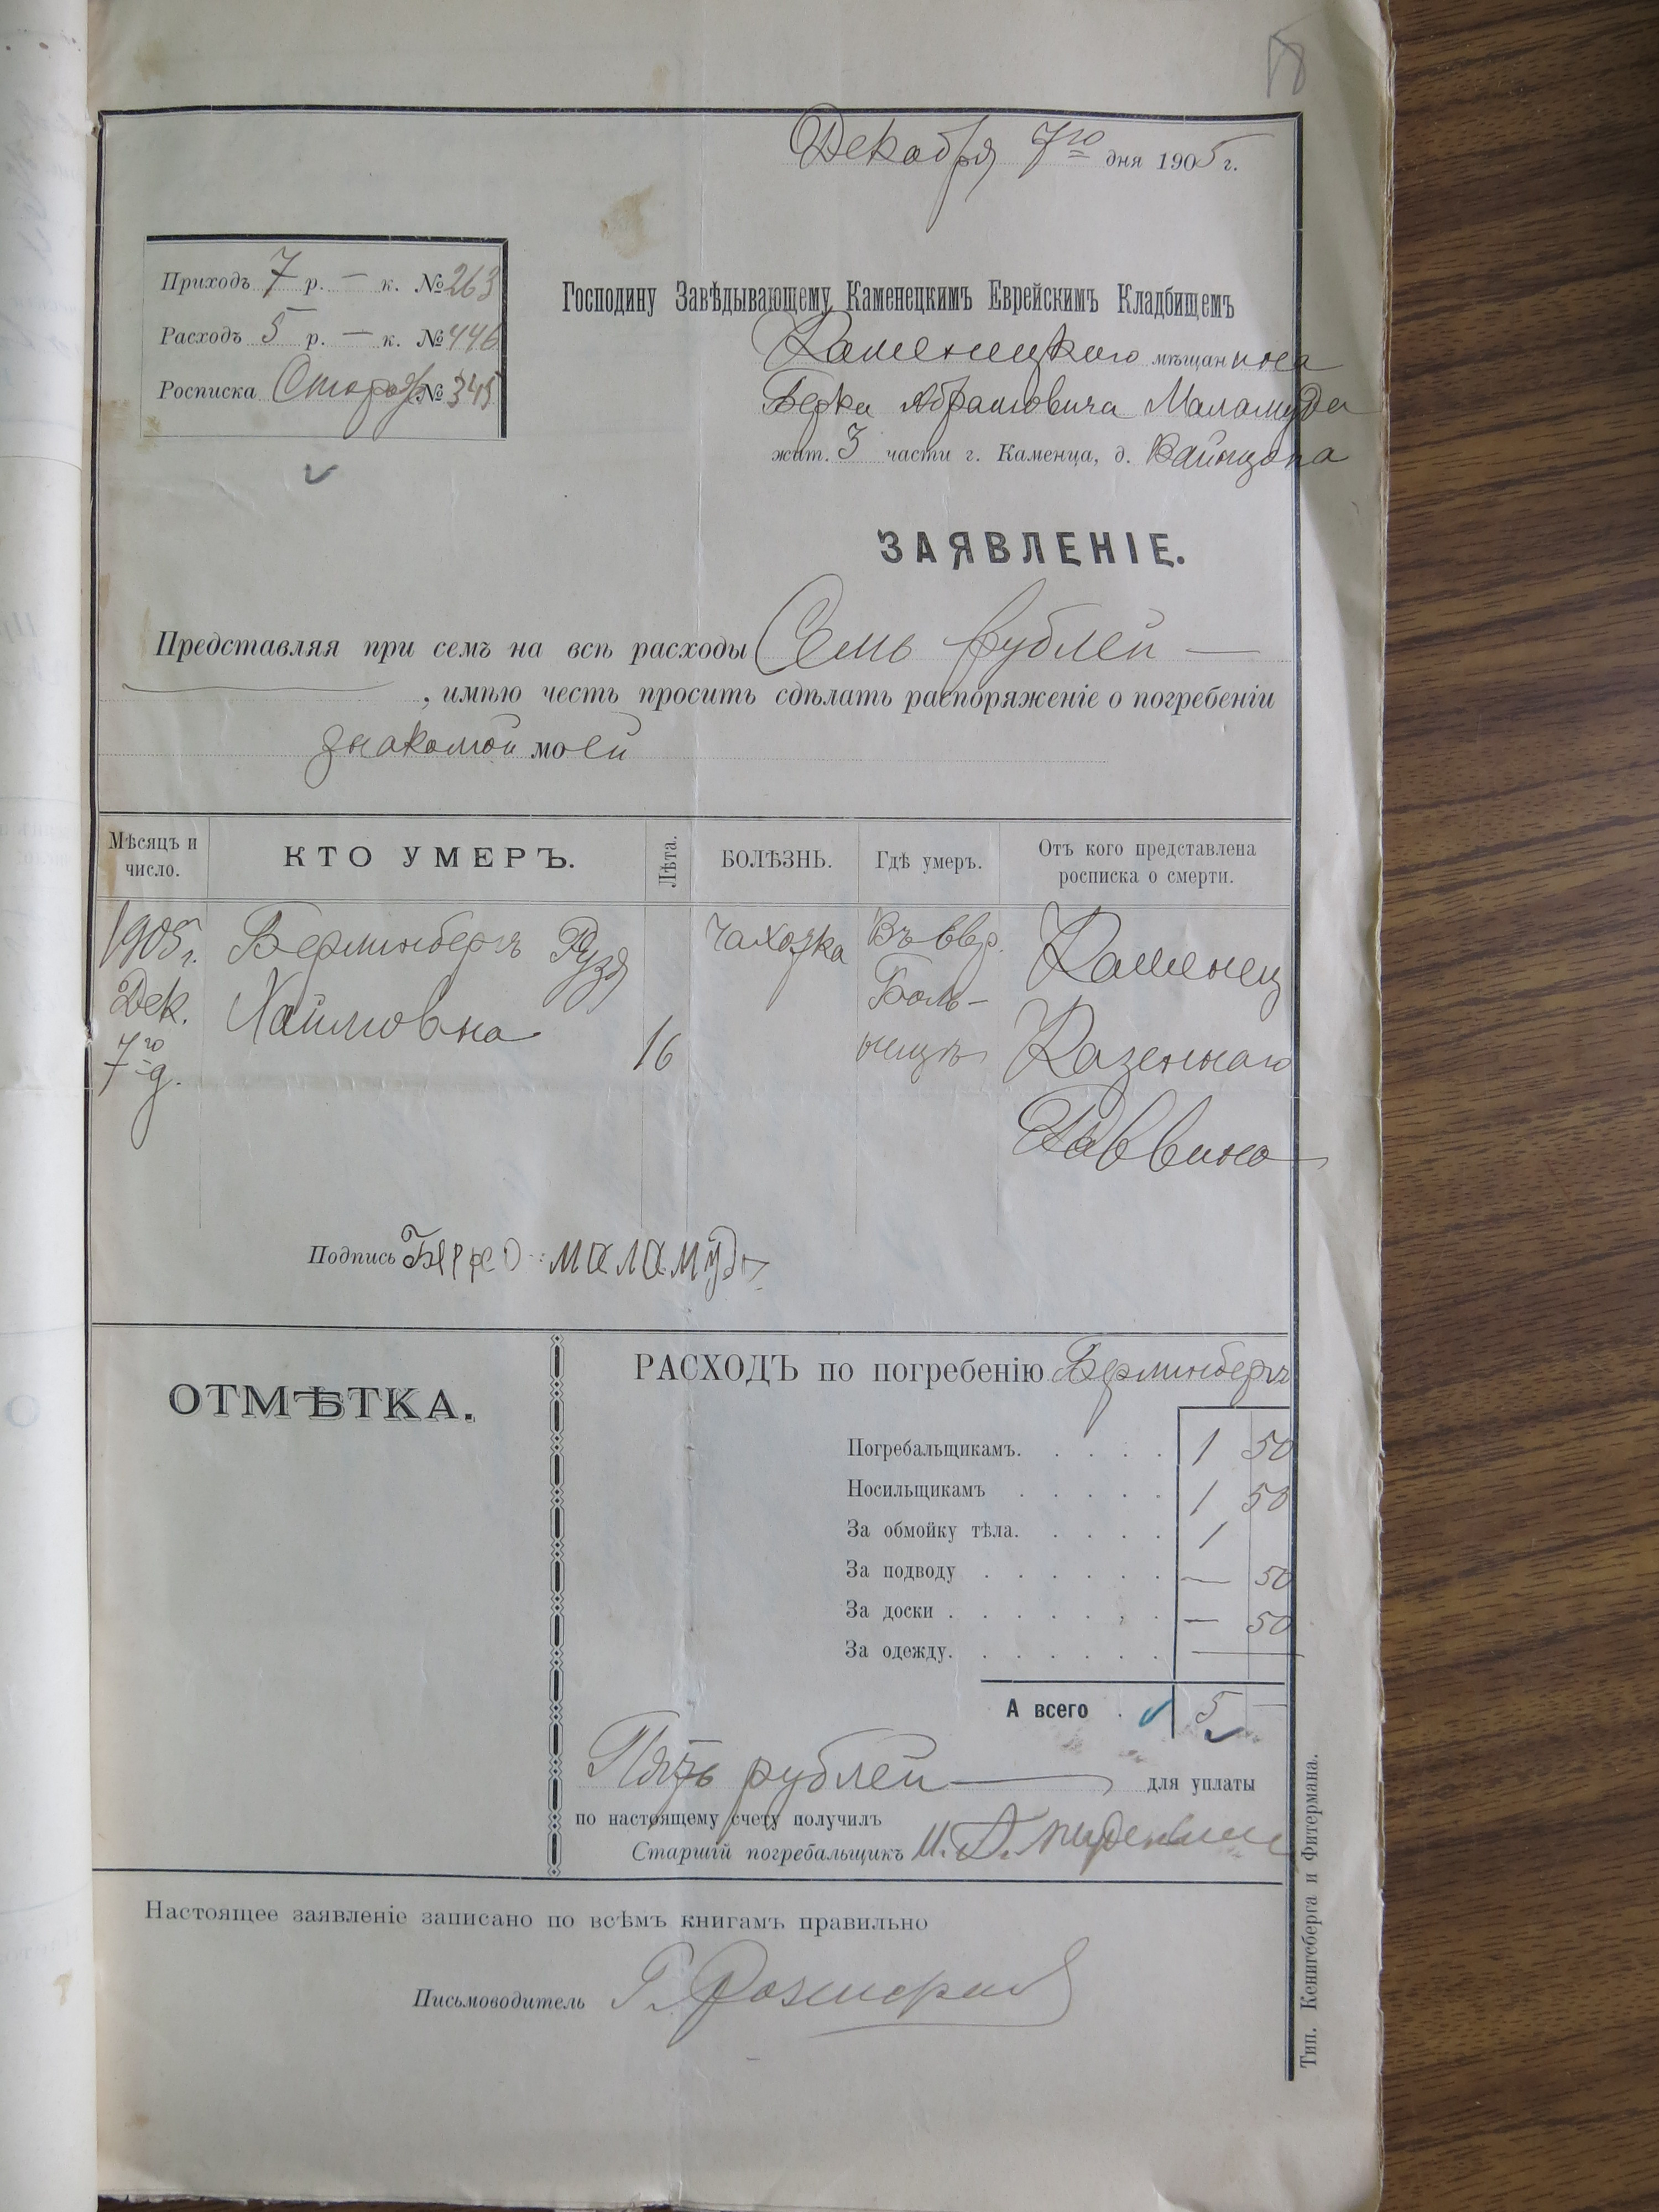 Декабря 7го дня 1905 г.
Приходъ 7 р. — к. № 263
Расходъ 5 р. — к. № 446
Росписка Сторож. № 345
Господину Завѣдывающему Каменецкимъ Еврейскимъ Кладбищемъ
Каменецкаго мѣщанина
Берка Абрамовича Маламуда
жит. 3 части г. Каменца, д. Вайнцона
ЗАЯВЛЕНІЕ.
Представляя при семъ на всѣ расходы Семь рублей —
—, имѣю честь просить сдѣлать распоряженіе о погребеніи
знакомой моей
Мѣсяцъ и число. КТО УМЕРЪ. Лѣта. БОЛѢЗНЬ. Гдѣ умеръ. Отъ кого представлена росписка о смерти.
1905 г. Берлинбергъ Рузя чахотка Въ евр. Каменец
Дек. Хаимовна Боль-
7го д. 16 ницѣ Казеннаго
Раввина
Подпись Берко маламудъ
ОТМѢТКА.
РАСХОДЪ по погребенію Берлинбергъ
Погребальщикамъ. 1 50
Носильщикамъ 1 50
За обмойку тѣла. 1
За подводу — 50
За доски . — 50
За одежду. —
А всего 5 —
Пять рублей — для уплаты
по настоящему счету получилъ
Старшій погребальщикъ
Настоящее заявленіе записано по всѣмъ книгамъ правильно
Письмоводитель
Тип. Кенигсберга и Фитермана.